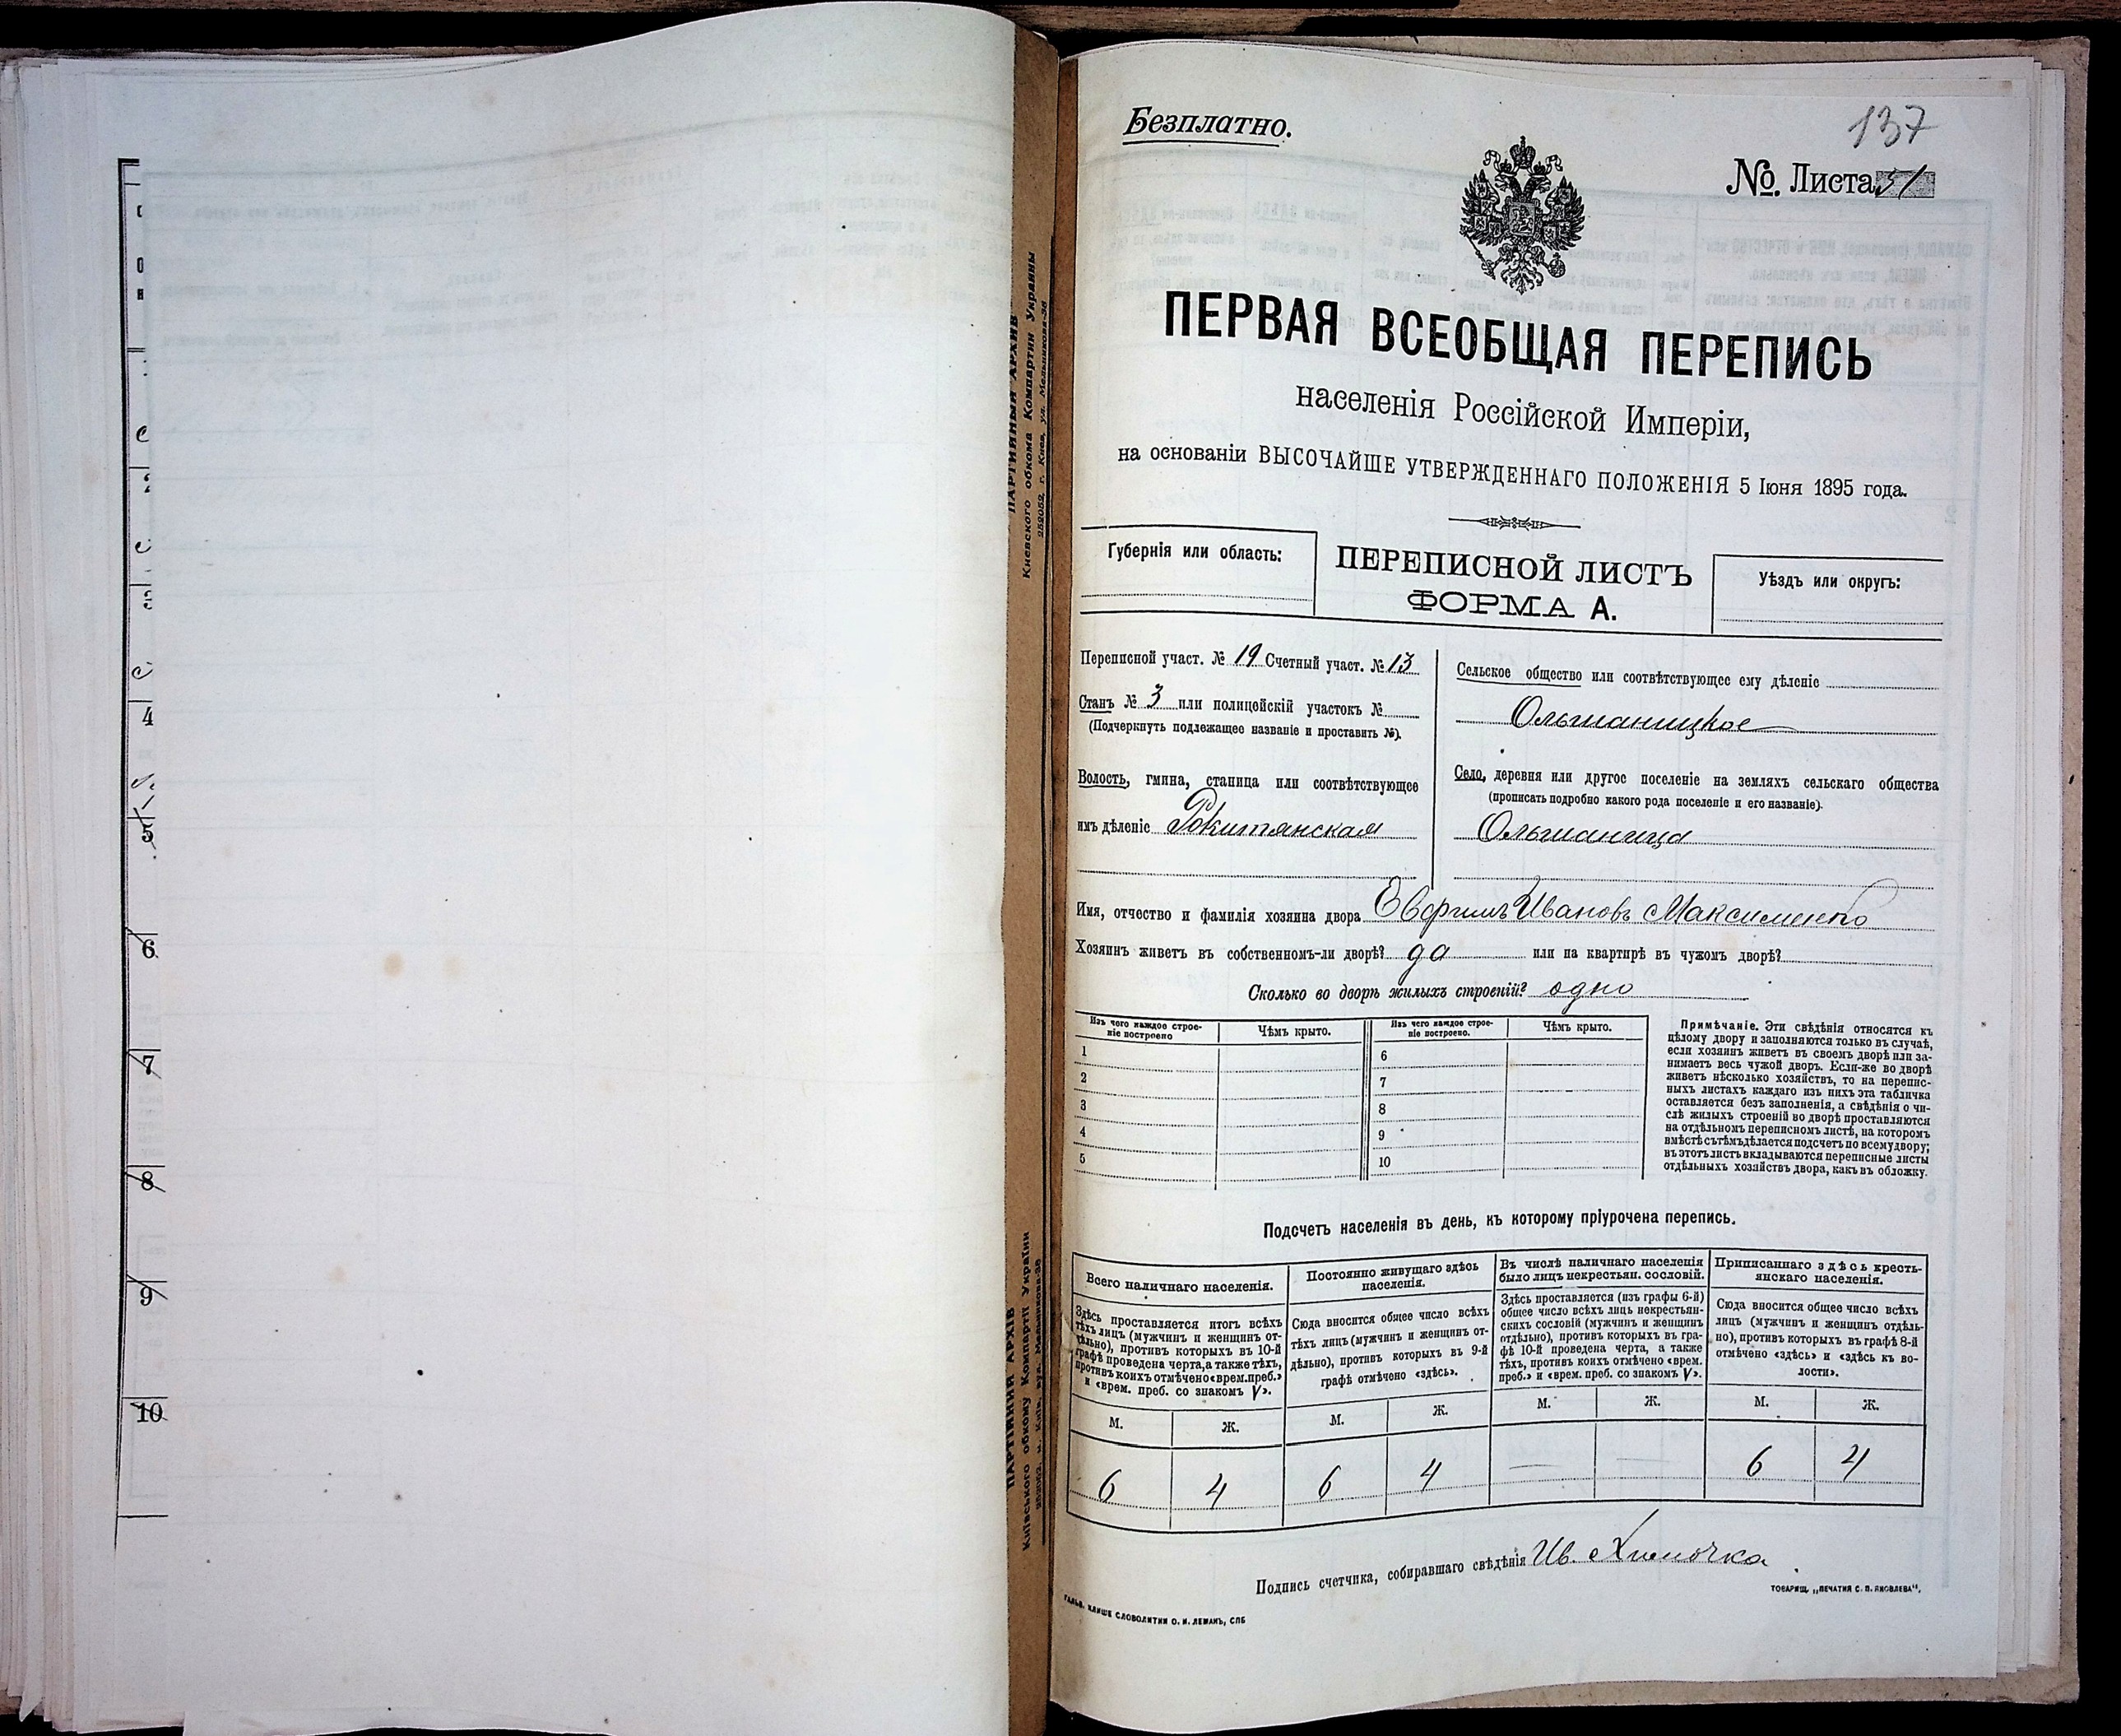 4
5
6
7
8
9
10
ПАРТИЙНЫЙ АРХИВ
Киевского обкома Компартии Украины
252052, г. Киев, ул. Мельникова-36
ПАРТІЙНИЙ АРХІВ
Київського обкому Компартії України
252052, м. Київ, вул. Мельникова-36
Безплатно.
137
№. Листа 51
ПЕРВАЯ ВСЕОБЩАЯ ПЕРЕПИСЬ
населенія Россійской Имперіи,
на основаніи ВЫСОЧАЙШЕ УТВЕРЖДЕННАГО ПОЛОЖЕНІЯ 5 Іюня 1895 года.
Губернія или область:
ПЕРЕПИСНОЙ ЛИСТЪ
ФОРМА А.
Уѣздъ или округъ:
Переписной участ. № 19 Счетный участ. № 13
Станъ № 3 или полицейскій участокъ №
(Подчеркнуть подлежащее названіе и проставить №).
Волость, гмина, станица или соотвѣтствующее
имъ дѣленіе Рокитянская
Сельское общество или соотвѣтствующее ему дѣленіе
Ольшаницкое
Село, деревня или другое поселеніе на земляхъ сельскаго общества
(прописать подробно какого рода поселеніе и его названіе).
Ольшаница
Имя, отчество и фамилія хозяина двора Евфимъ Ивановъ Максименко
Хозяинъ живетъ въ собственномъ-ли дворѣ? да или на квартирѣ въ чужомъ дворѣ?
Сколько во дворѣ жилыхъ строеній? одно
Изъ чего каждое строе-
ніе построено
Чѣмъ крыто.
Изъ чего каждое строе-
ніе построено.
Чѣмъ крыто.
1
2
3
4
5
6
7
8
9
10
Примѣчаніе. Эти свѣдѣнія относятся къ
цѣлому двору и заполняются только въ случаѣ,
если хозяинъ живетъ въ своемъ дворѣ или за-
нимаетъ весь чужой дворъ. Если-же во дворѣ
живетъ нѣсколько хозяйствъ, то на перепис-
ныхъ листахъ каждаго изъ нихъ эта табличка
оставляется безъ заполненія, а свѣдѣнія о чи-
слѣ жилыхъ строеній во дворѣ проставляются
на отдѣльномъ переписномъ листѣ, на которомъ
вмѣстѣ съ тѣмъ дѣлается подсчетъ по всему двору;
въ этотъ листъ вкладываются переписные листы
отдѣльныхъ хозяйствъ двора, какъ въ обложку.
Подсчетъ населенія въ день, къ которому пріурочена перепись.
Всего наличнаго населенія.
Здѣсь проставляется итогъ всѣхъ
тѣхъ лицъ (мужчинъ и женщинъ от-
дѣльно), противъ которыхъ въ 10-й
графѣ проведена черта, а также тѣхъ,
противъ коихъ отмѣчено «врем. преб.»
и «врем. преб. со знакомъ V».
Постоянно живущаго здѣсь
населенія.
Сюда вносится общее число всѣхъ
тѣхъ лицъ (мужчинъ и женщинъ от-
дѣльно), противъ которыхъ въ 9-й
графѣ отмѣчено «здѣсь».
Въ числѣ наличнаго населенія
было лицъ некрестьян. сословій.
Здѣсь проставляется (изъ графы 6-й)
общее число всѣхъ лицъ некрестьян-
скихъ сословій (мужчинъ и женщинъ
отдѣльно), противъ которыхъ въ гра-
фѣ 10-й проведена черта, а также
тѣхъ, противъ коихъ отмѣчено «врем.
преб.» и «врем. преб. со знакомъ V».
Приписаннаго здѣсь кресть-
янскаго населенія.
Сюда вносится общее число всѣхъ
лицъ (мужчинъ и женщинъ отдѣль-
но), противъ которыхъ въ графѣ 8-й
отмѣчено «здѣсь» и «здѣсь къ во-
лости».
М. Ж. М. Ж. М. Ж. М. Ж.
6 4 6 4 — — 6 4
Подпись счетчика, собиравшаго свѣдѣнія Ив. Химочка
ТОВАРИЩ. „ПЕЧАТНЯ С. П. ЯКОВЛЕВА“.
ГАЛЬВ. КЛИШЕ СЛОВОЛИТНИ О. И. ЛЕМАНЪ, СПБ